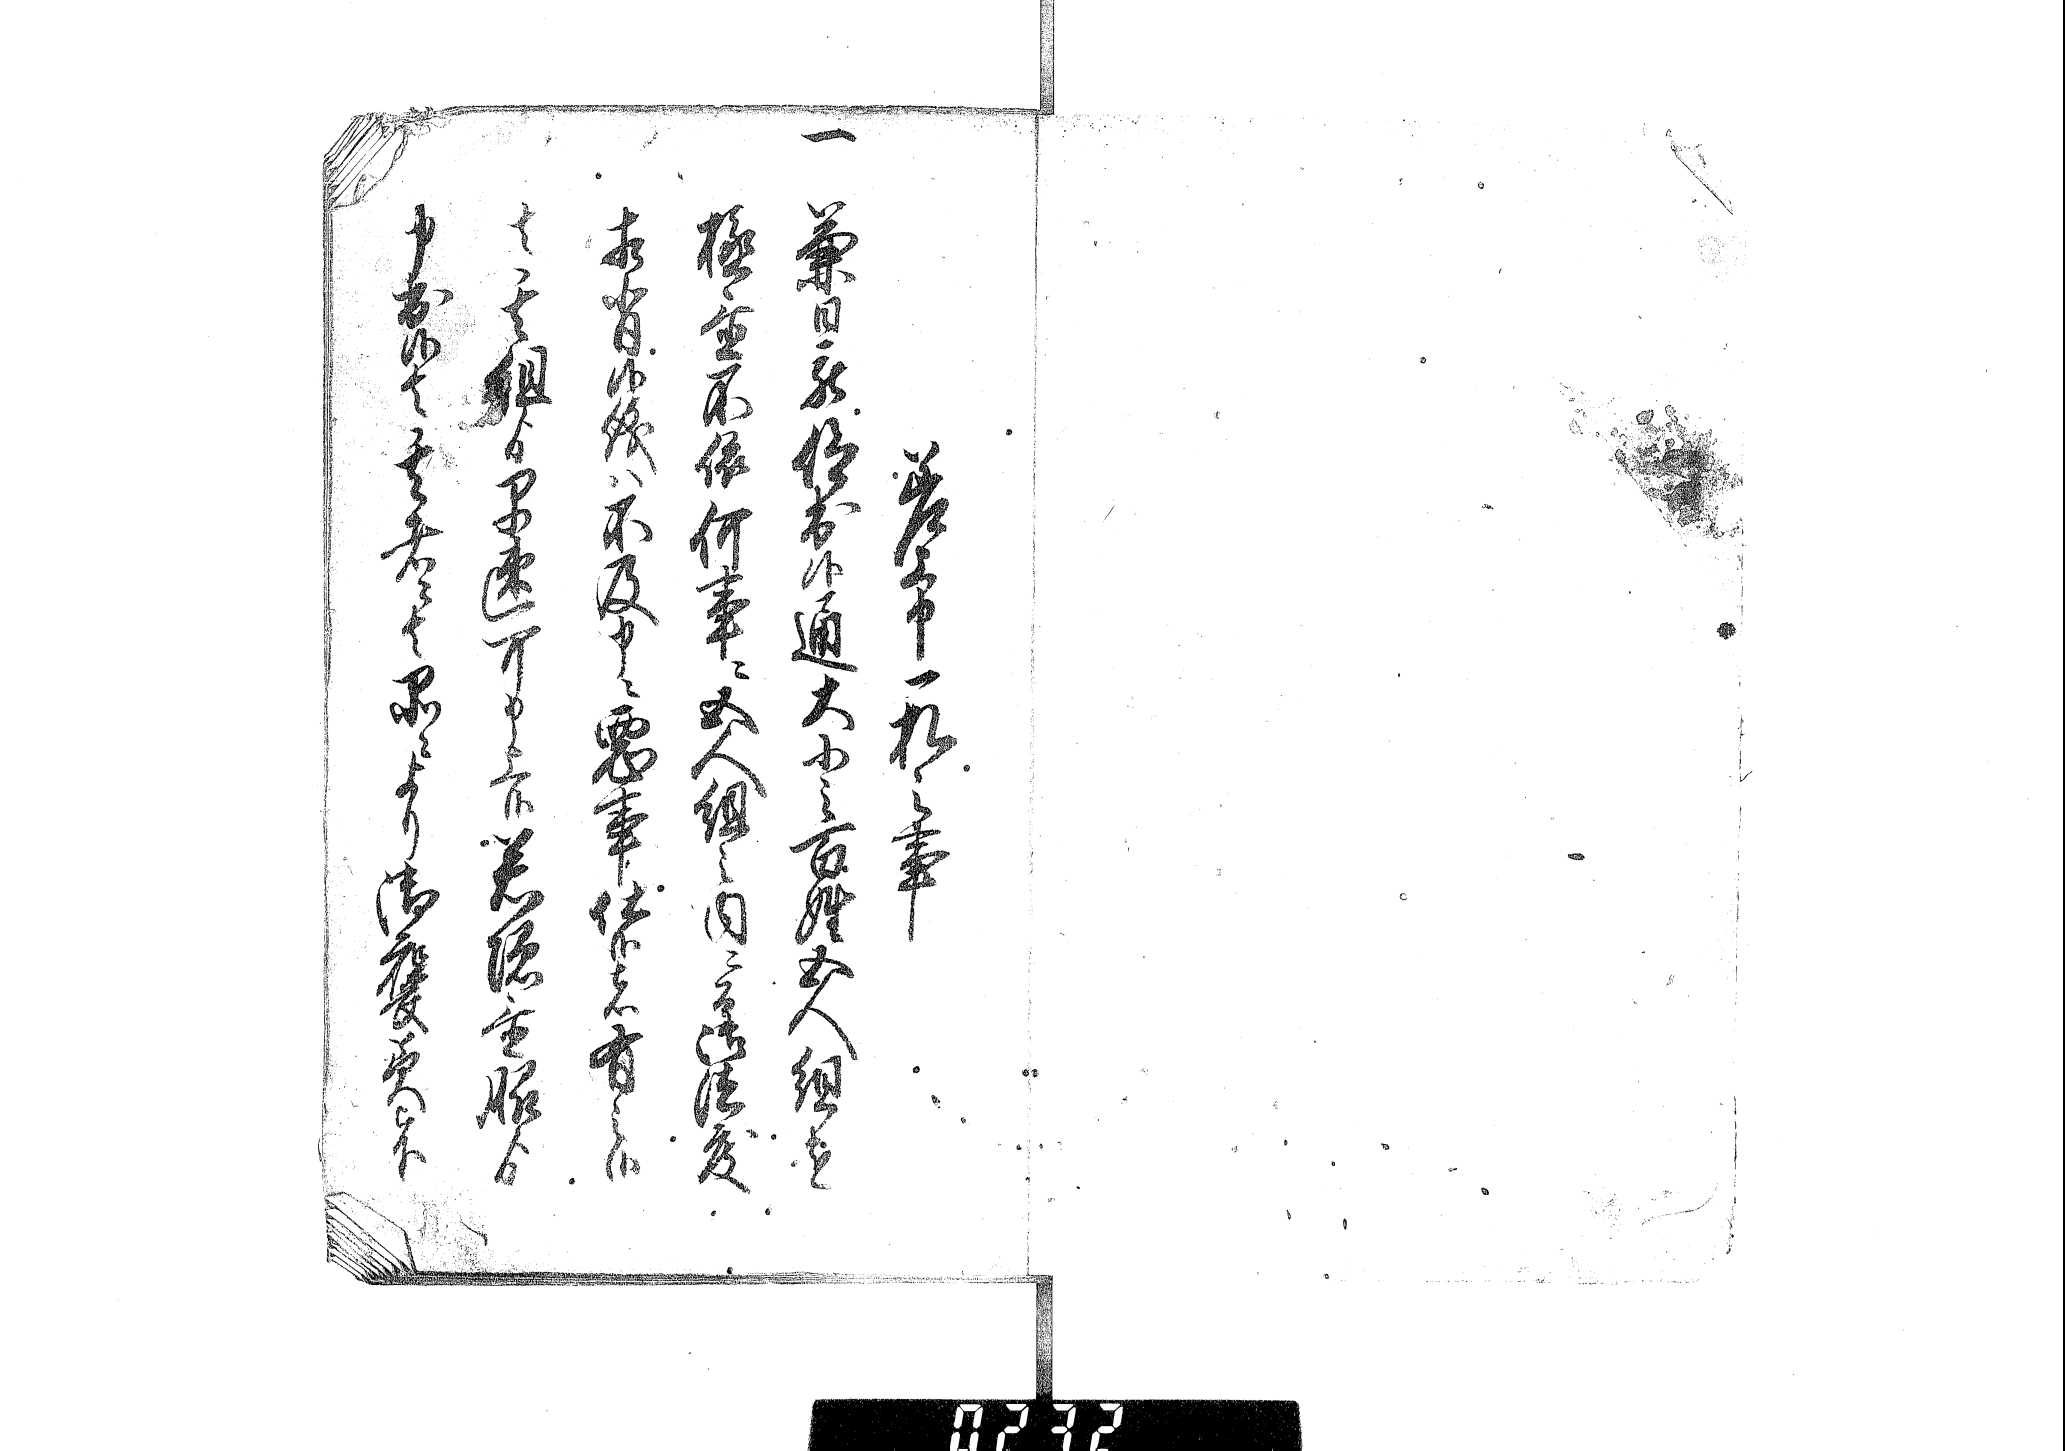 差上申一札之事
一 兼日被仰出候通大小之百姓五人組を
極置不依何事ニ五人組之内ニ而御法度
相背候儀ハ不及申ニ悪事仕候者有之候
ハヽ其組ゟ早速可申上候若隠置脇ゟ
申出候ハヽ其者ニハ品ニより御褒美被下
0232